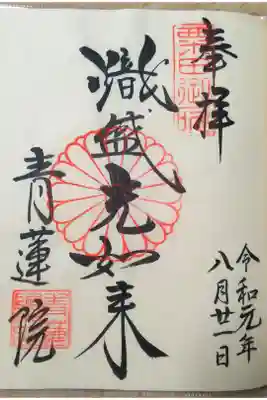 奉拝
令和元年
八月廿一日
熾盛光如来
青蓮院
粟田御所